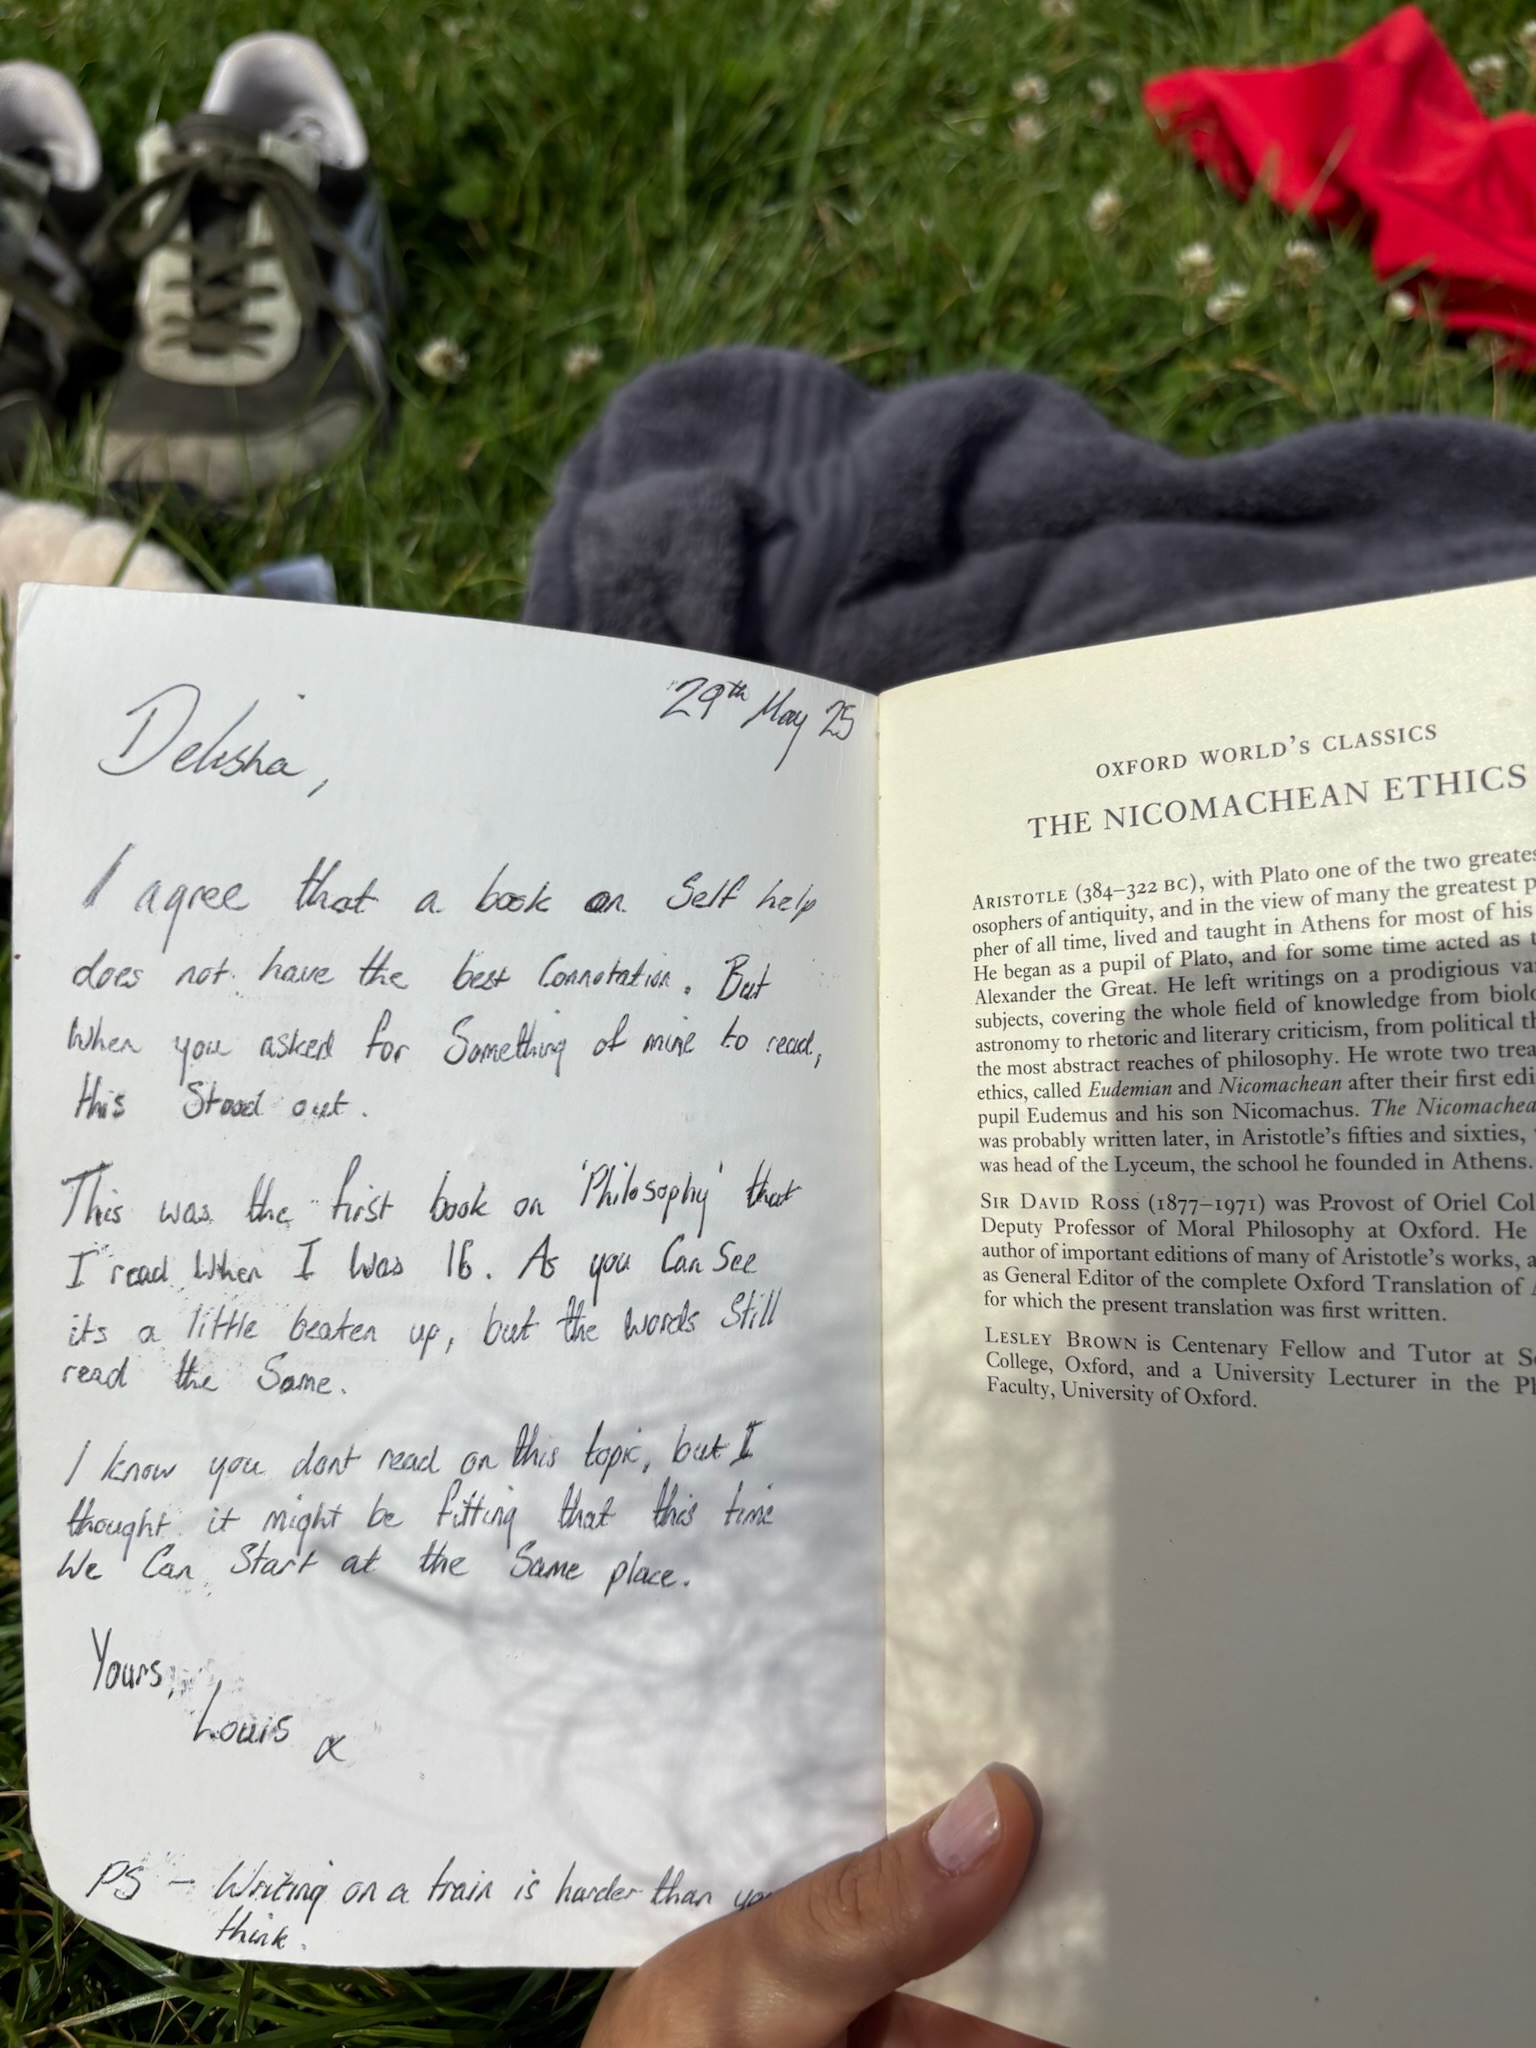 29th May 25
Delisha,
I agree that a book on Self help
does not have the best Connotation. But
When you asked for Something of mine to read,
this Stood out.
This was the first book on 'Philosophy' that
I read When I Was 16. As you Can See
its a little beaten up, but the words Still
read the Same.
I know you dont read on this topic, but I
thought it might be fitting that this time
We Can Start at the Same place.
Yours,
Louis x
PS - Writing on a train is harder than
think.
OXFORD WORLD'S CLASSICS
THE NICOMACHEAN ETHICS
ARISTOTLE (384–322 BC), with Plato one of the two
osophers of antiquity, and in the view of many the greatest
pher of all time, lived and taught in Athens for most of his
He began as a pupil of Plato, and for some time acted as
Alexander the Great. He left writings on a prodigious
subjects, covering the whole field of knowledge from
astronomy to rhetoric and literary criticism, from political
the most abstract reaches of philosophy. He wrote two
ethics, called Eudemian and Nicomachean after their first
pupil Eudemus and his son Nicomachus. The
was probably written later, in Aristotle's fifties and sixties,
was head of the Lyceum, the school he founded in Athens.
SIR DAVID ROSS (1877–1971) was Provost of Oriel
Deputy Professor of Moral Philosophy at Oxford. He
author of important editions of many of Aristotle's works,
as General Editor of the complete Oxford Translation of
for which the present translation was first written.
LESLEY BROWN is Centenary Fellow and Tutor at
College, Oxford, and a University Lecturer in the
Faculty, University of Oxford.